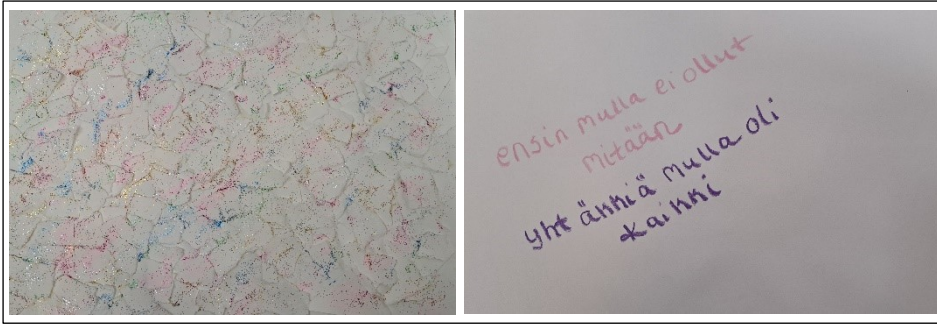 ensin mulla ei ollut
mitään
yht äkkiä mulla oli
kaikki